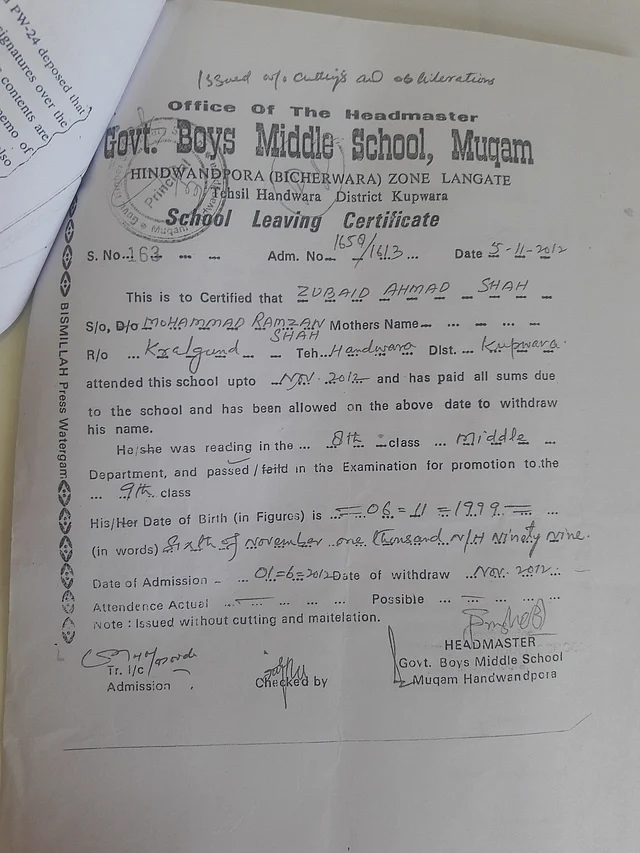 PW-24 deposed that
signatures over the
contents are
emo of
also
Issued w/o cuttings and obliterations
Office Of The Headmaster
Govt. Boys Middle School, Muqam
HINDWANDPORA (BICHERWARA) ZONE LANGATE
Tehsil Handwara District Kupwara
School Leaving Certificate
Principal
Muqam
S. No. 163 Adm. No. 1650/1613 Date 5-11-2012
This is to Certified that ZUBAID AHMAD SHAH
S/o, D/o MOHAMMAD RAMZAN SHAH Mothers Name
R/o Kralgund Teh. Handwara Dist. Kupwara
attended this school upto Nov. 2012 and has paid all sums due
to the school and has been allowed on the above date to withdraw
his name.
He/she was reading in the 8th class Middle
Department, and passed / faild in the Examination for promotion to the
9th class
His/Her Date of Birth (in Figures) is = 06 = 11 = 1999 =
(in words) Sixth of November one thousand N/H Ninety Nine.
Date of Admission - 01=6=2012 Date of withdraw Nov. 2012
Attendence Actual Possible
Note : Issued without cutting and maitelation.
Tr. I/c
Admission
Checked by
HEADMASTER
Govt. Boys Middle School
Muqam Handwandpora
BISMILLAH Press Watergam